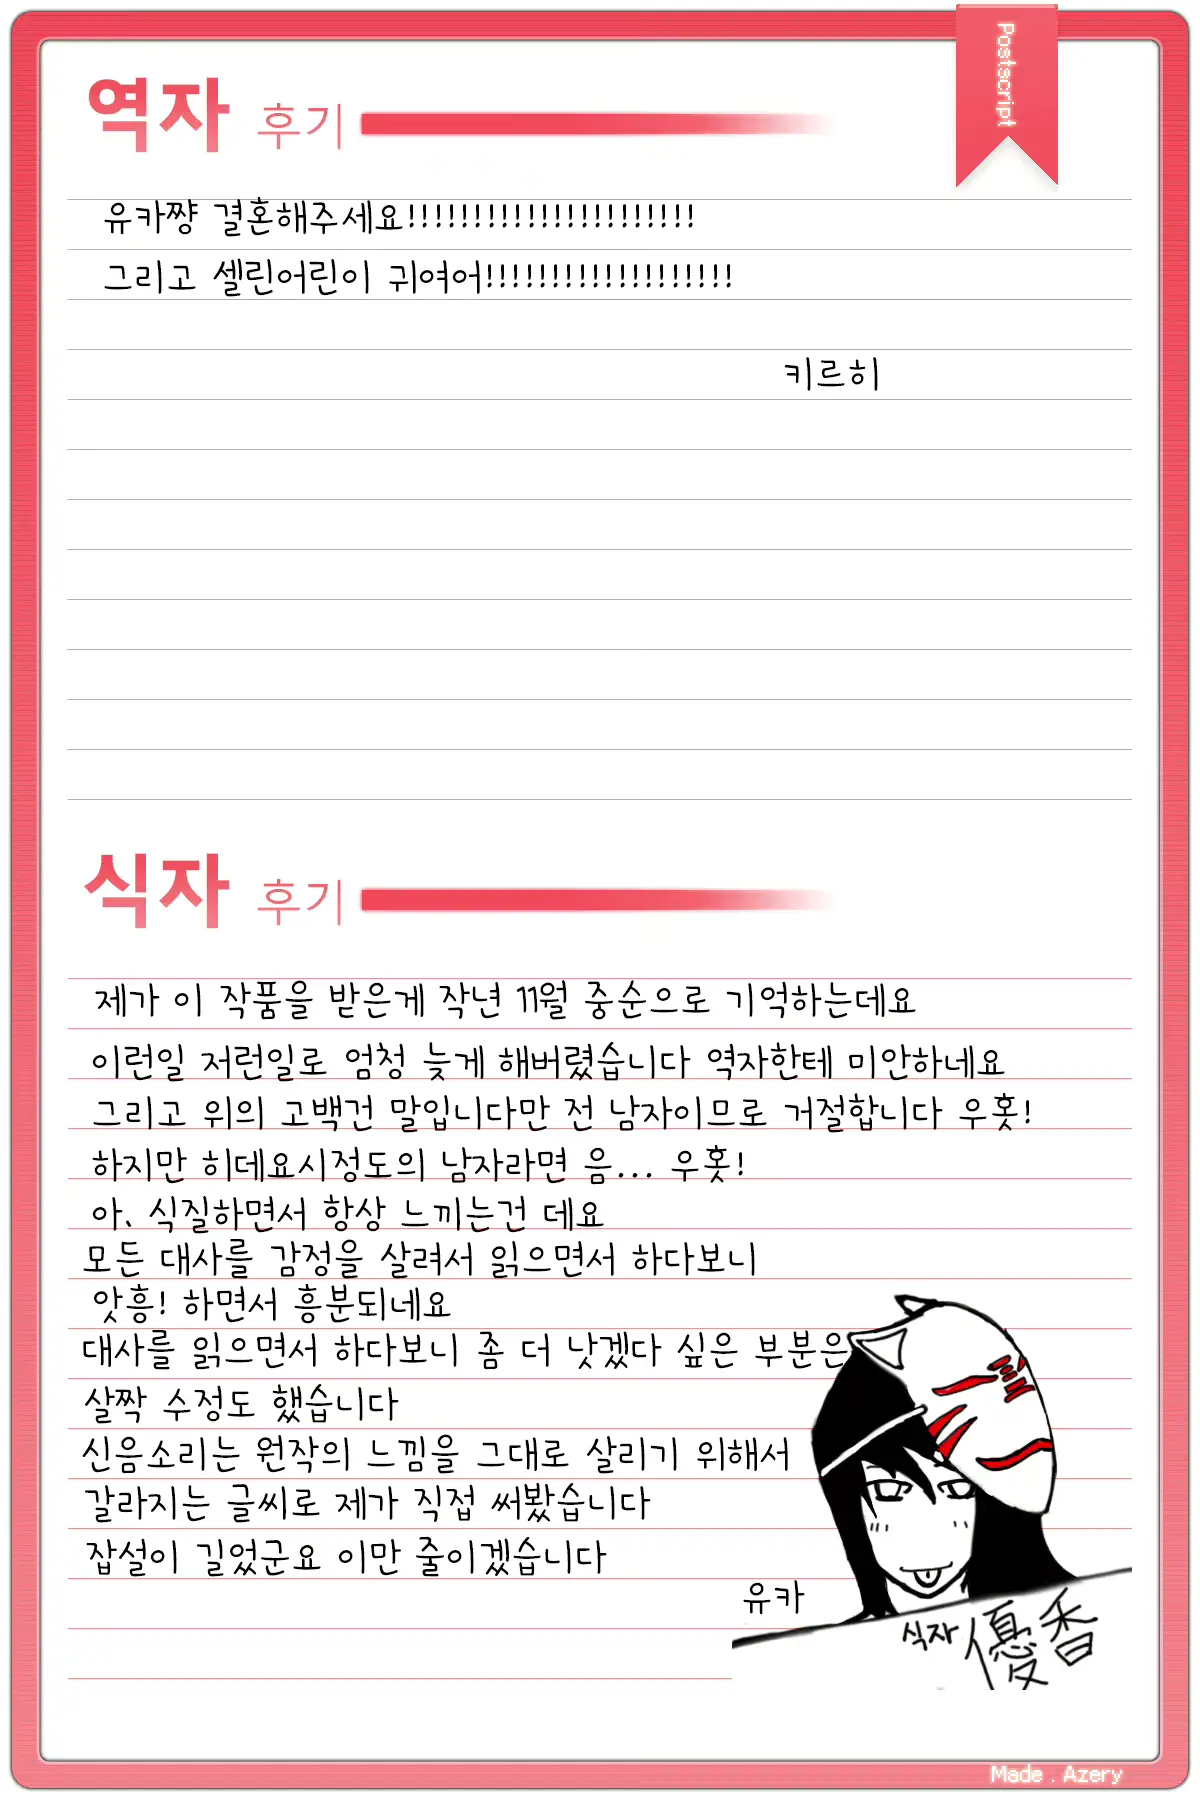 Postscript
역자 후기
유카쨩 결혼해주세요!!!!!!!!!!!!!!!!!!!!!!
그리고 셀린어린이 귀여어!!!!!!!!!!!!!!!!!!!
키르히
식자 후기
제가 이 작품을 받은게 작년 11월 중순으로 기억하는데요
이런일 저런일로 엄청 늦게 해버렸습니다 역자한테 미안하네요
그리고 위의 고백건 말입니다만 전 남자이므로 거절합니다 우홋!
하지만 히데요시정도의 남자라면 음... 우홋!
아. 식질하면서 항상 느끼는건 데요
모든 대사를 감정을 살려서 읽으면서 하다보니
앗흥! 하면서 흥분되네요
대사를 읽으면서 하다보니 좀 더 낫겠다 싶은 부분은
살짝 수정도 했습니다
신음소리는 원작의 느낌을 그대로 살리기 위해서
갈라지는 글씨로 제가 직접 써봤습니다
잡설이 길었군요 이만 줄이겠습니다
유카
식자 優香
Made . Azery